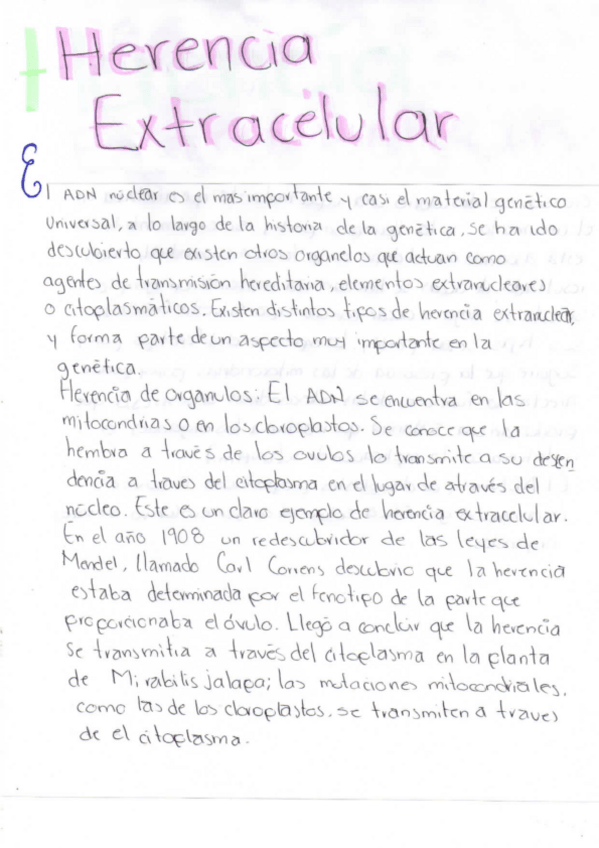 Herencia
Extracélular
El ADN nuclear es el mas importante y casi el material genético
Universal, a lo largo de la historia de la genética, se ha ido
descubierto que existen otros organelos que actuan como
agentes de transmisión hereditaria, elementos extranucleares
o citoplasmáticos. Existen distintos tipos de herencia extranuclear,
y forma parte de un aspecto muy importante en la
genética.
Herencia de organulos: El ADN se encuentra en las
mitocondrias o en los cloroplastos. Se conoce que la
hembra a través de los ovulos lo transmite a su desen
dencia a traves del citoplasma en el lugar de através del
núcleo. Este es un claro ejemplo de herencia extracelular.
En el año 1908 un redescubridor de las leyes de
Mendel, llamado Carl Correns descubrio que la herencia
estaba determinada por el fenotipo de la parte que
proporcionaba el óvulo. Llegó a concluir que la herencia
se transmitia a través del citoplasma en la planta
de Mirabilis jalapa; las mutaciones mitocondriales.
como las de los cloroplastos. se transmiten a traves
de el citoplasma.